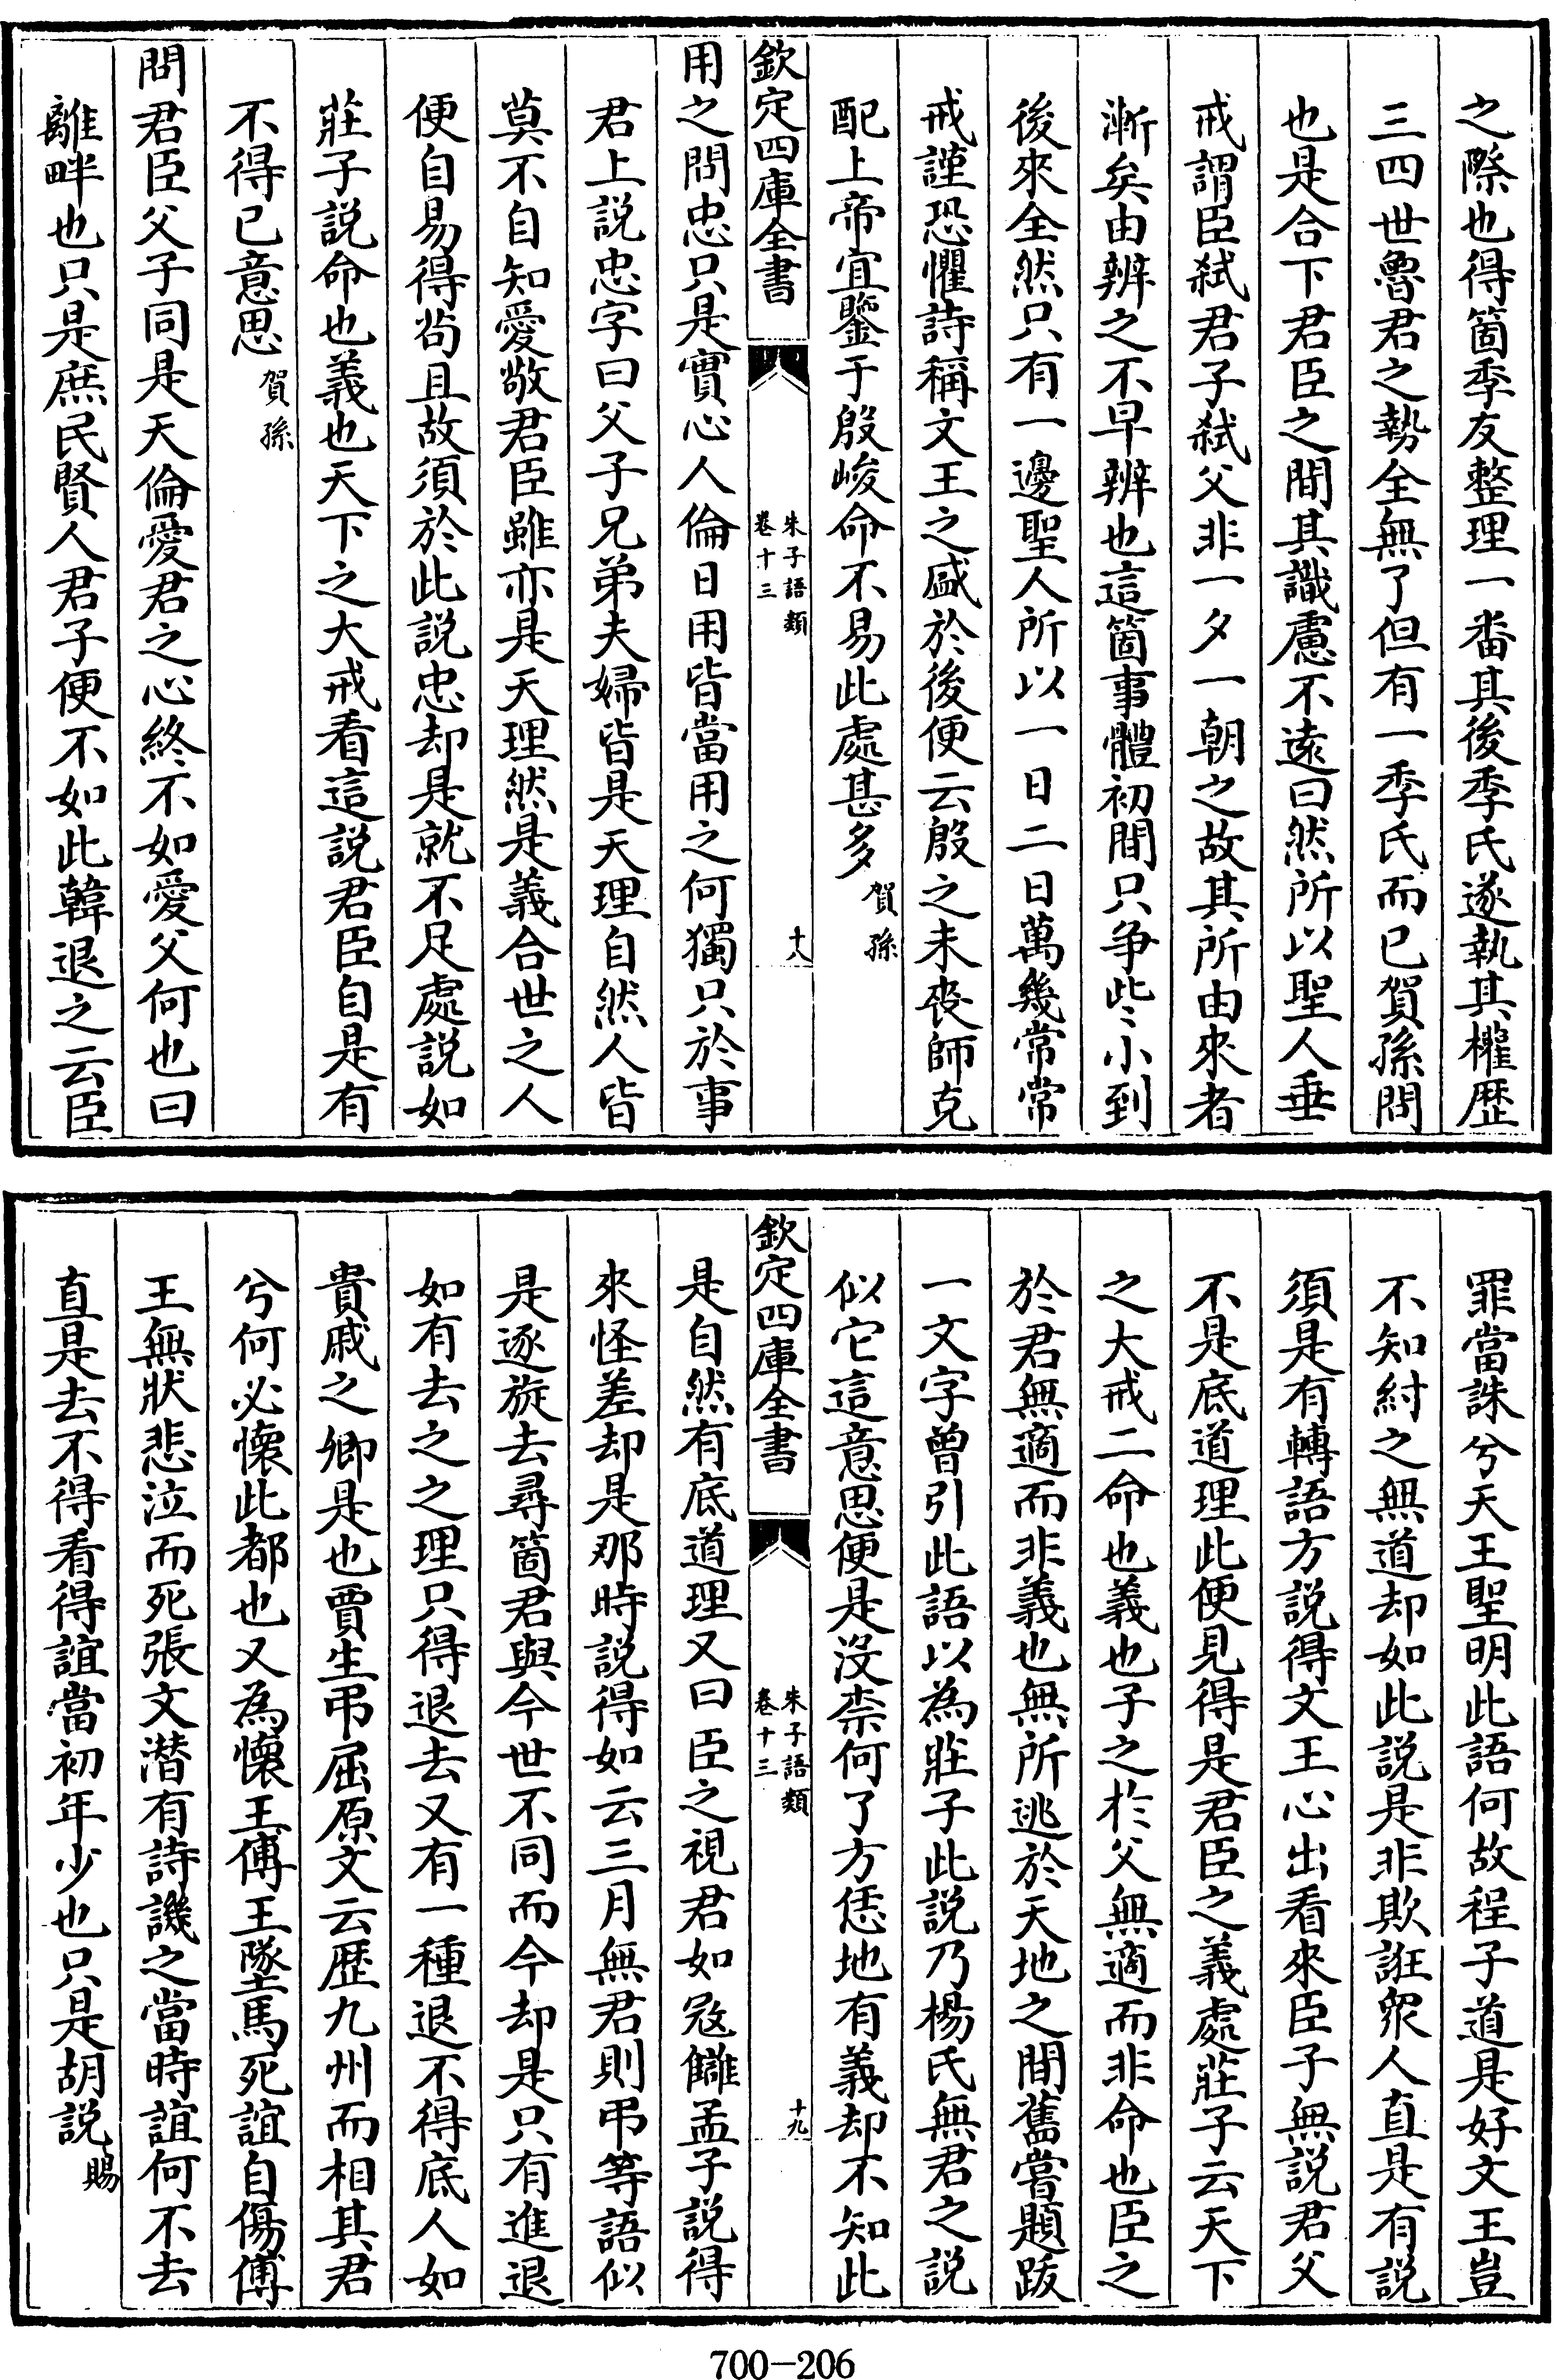 之際也得箇季友整理一番其後季氏遂執其權歴
三四世魯君之勢全無了但有一季氏而已賀孫問
也是合下君臣之間其識慮不遠曰然所以聖人垂
戒謂臣弑君子弑父非一夕一朝之故其所由來者
漸矣由辨之不早辨也這箇事體初間只争些小到
後來全然只有一邊聖人所以一日二日萬幾常常
戒謹恐懼詩稱文王之盛於後便云殷之未喪師克
配上帝宜鑒于殷峻命不易此處甚多賀孫
欽定四庫全書
朱子語類
卷十三
十八
用之問忠只是實心人倫日用皆當用之何獨只於事
君上説忠字曰父子兄弟夫婦皆是天理自然人皆
莫不自知愛敬君臣雖亦是天理然是義合世之人
便自易得苟且故須於此説忠却是就不足處説如
莊子説命也義也天下之大戒看這説君臣自是有
不得已意思賀孫
問君臣父子同是天倫愛君之心終不如愛父何也曰
離畔也只是庶民賢人君子便不如此韓退之云臣
罪當誅兮天王聖明此語何故程子道是好文王豈
不知紂之無道却如此説是非欺誑衆人直是有説
須是有轉語方説得文王心出看來臣子無説君父
不是底道理此便見得是君臣之義處莊子云天下
之大戒二命也義也子之於父無適而非命也臣之
於君無適而非義也無所逃於天地之間舊嘗題跋
一文字曾引此語以為莊子此説乃楊氏無君之説
似它這意思便是没柰何了方恁地有義却不知此
欽定四庫全書
朱子語類
卷十三
十九
是自然有底道理又曰臣之視君如宼讎孟子説得
來怪差却是那時説得如云三月無君則弔等語似
是逐旋去尋箇君與今世不同而今却是只有進退
如有去之之理只得退去又有一種退不得底人如
貴戚之卿是也賈生弔屈原文云歴九州而相其君
兮何必懷此都也又為懷王傅王墜馬死誼自傷傅
王無狀悲泣而死張文潜有詩譏之當時誼何不去
直是去不得看得誼當初年少也只是胡説賜
700-206